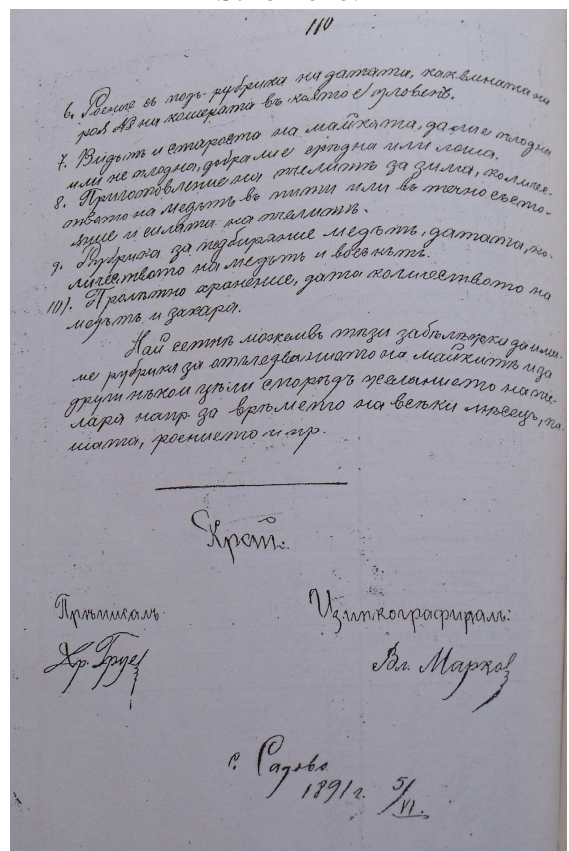 110
6. Роение съ подъ-рубрика на датата, каквината на
роя № на кошерата въ която е уловенъ.
7. Видътъ и старостта на майката, дали е плодна
или не плодна, добра ли е средня или лоша.
8. Приготовление на пчелитѣ за зима, количе-
ството на медътъ въ пити или въ течно състо-
яние и силата на пчелитѣ.
9. Рубрика за подбирание медътъ, датата, ко-
личеството на медътъ и восъкътъ.
10). Пролѣтно хранение, дата количеството на
медътъ и захаря.
Най сетнѣ можемъ въ тѣзи забѣлѣжки да има-
ме рубрика за отглеждванието на майкитѣ и за
други нѣкои цѣли споредъ желанието на пче-
ларя напр. за врѣмето на всѣки мѣсецъ, па-
шата, роението и пр.
Край.
Прѣписалъ
Изцинкографиралъ:
Хр. Груев
Вл. Марков
с. Садово
1891 г. 5/VI.